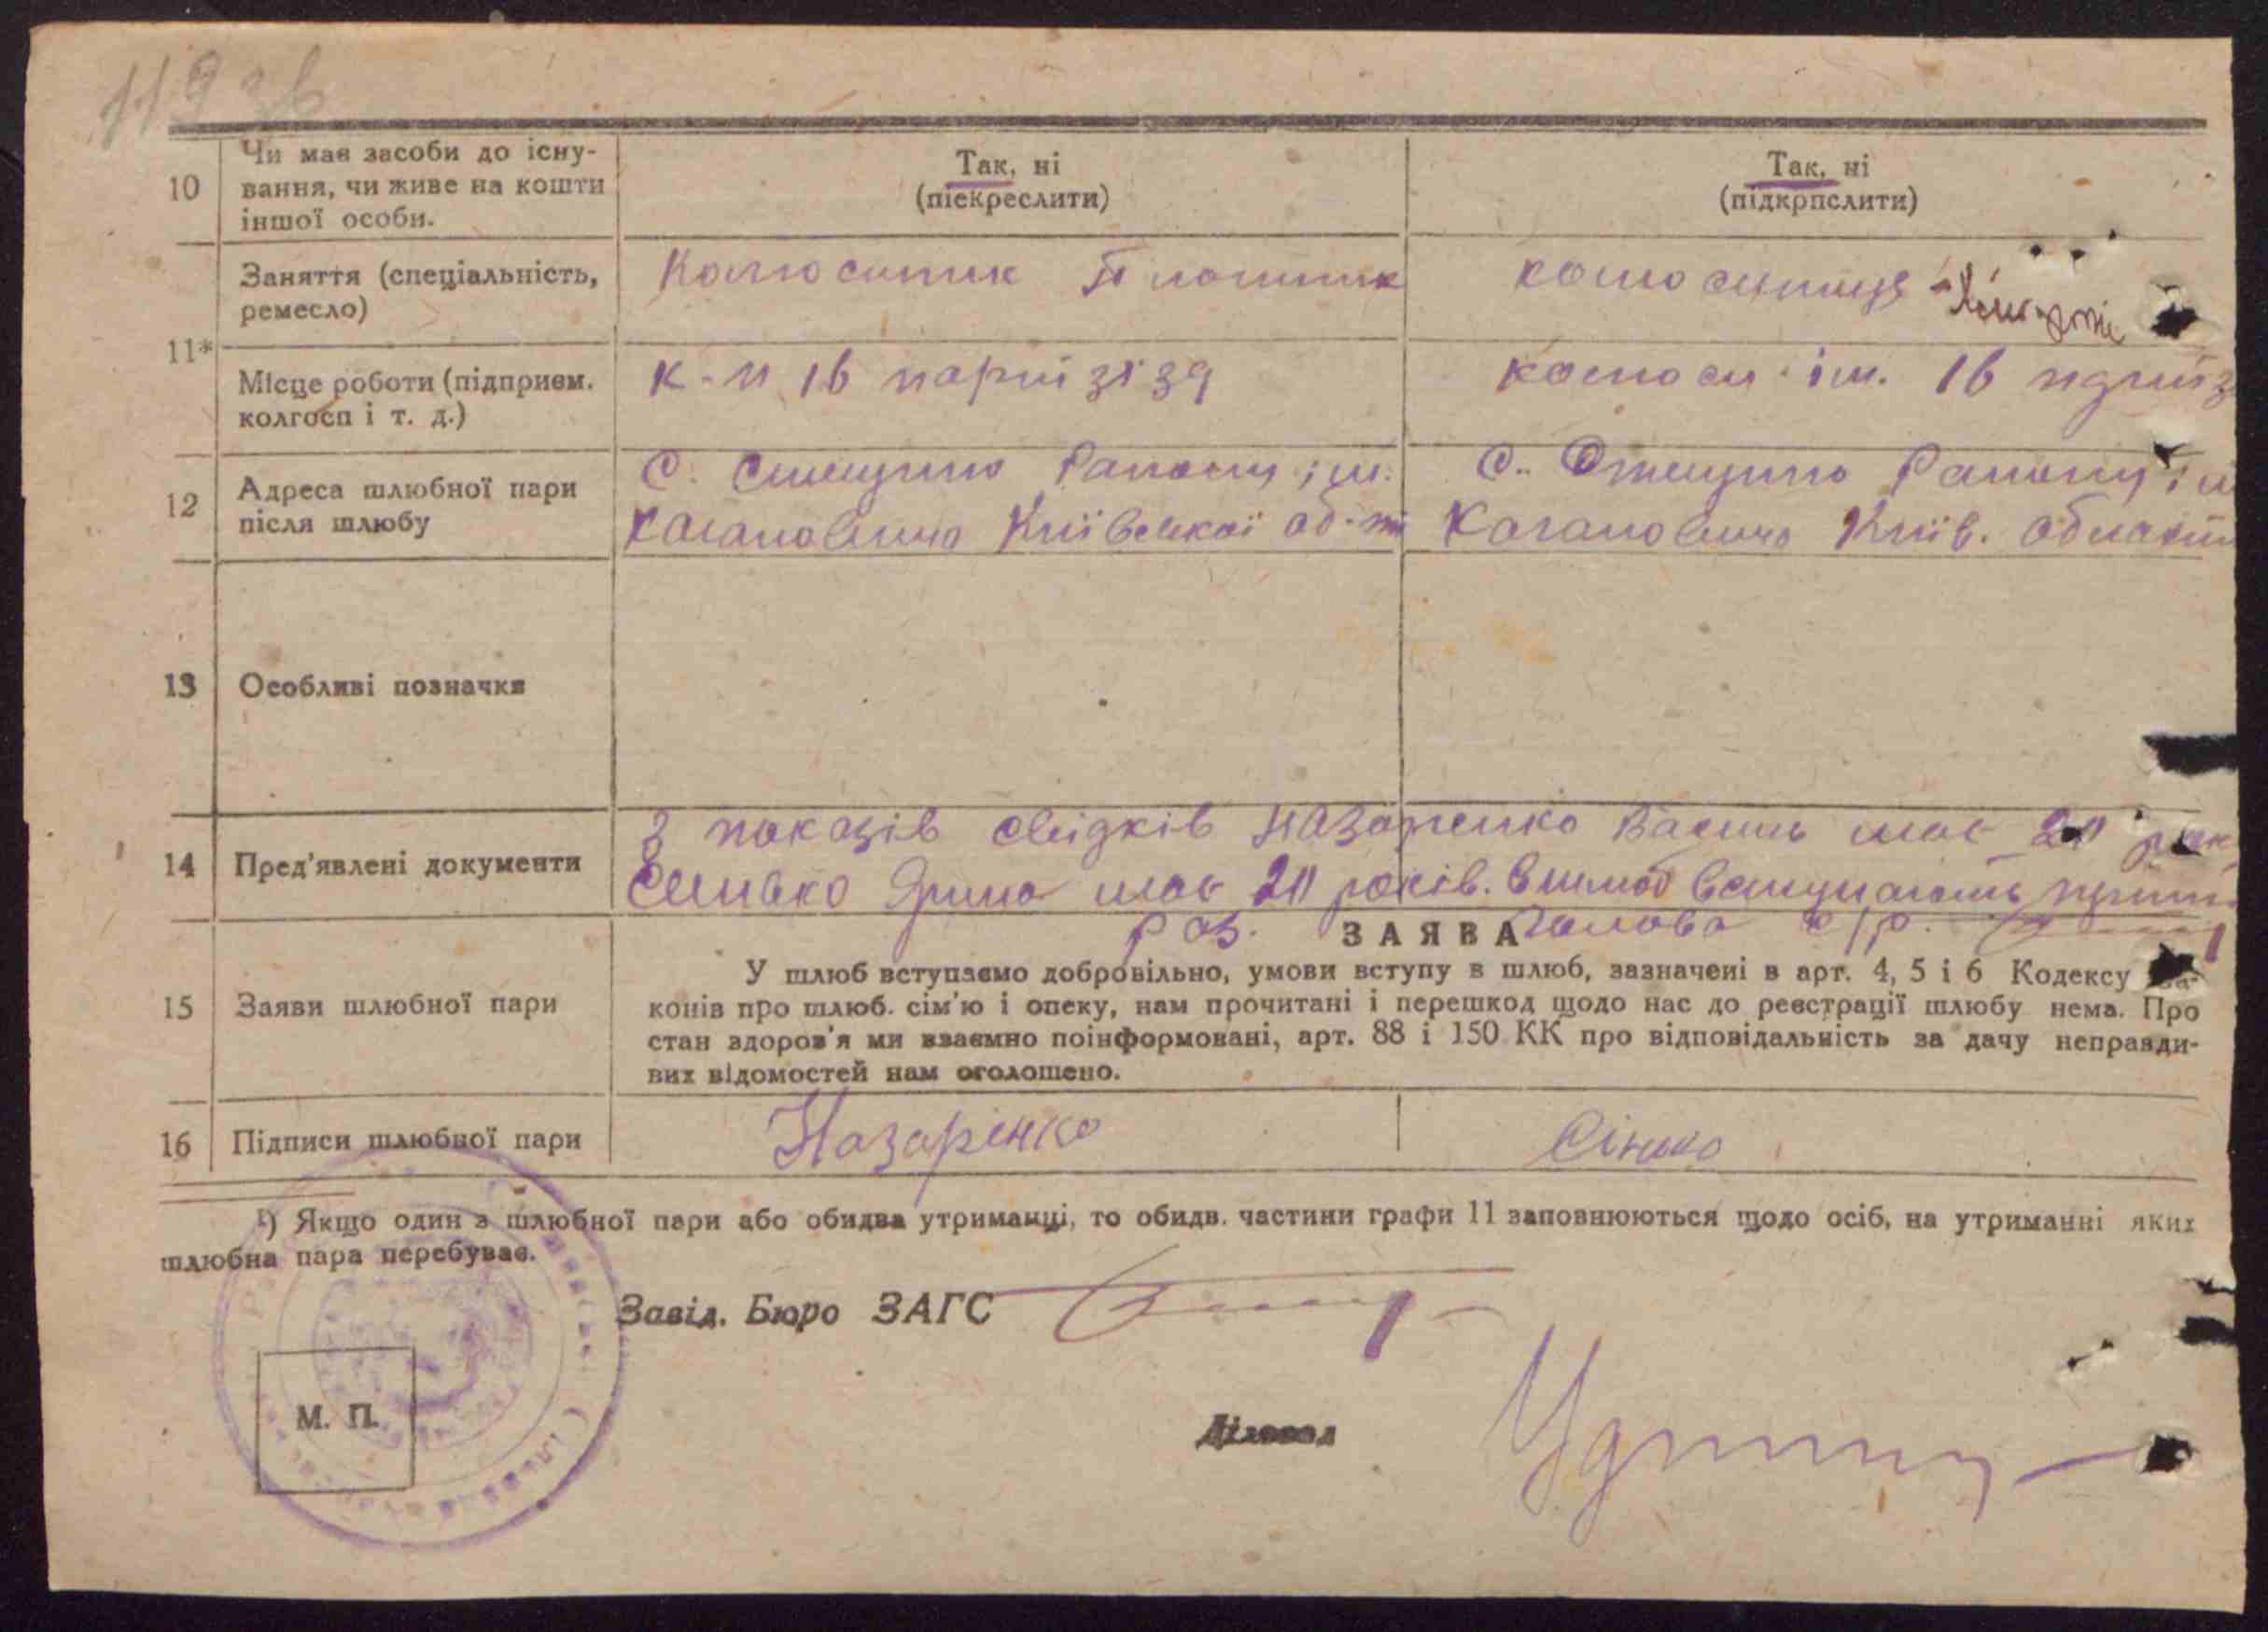 119 зв
10
Чи має засоби до існу-
вання, чи живе на кошти
іншої особи.
Так, ні
(піекреслити)
Так, ні
(підкрпслити)
11*
Заняття (специальність,
ремесло)
Колгоспник Плотник
колгоспниця
Місце роботи (підприєм.
колгосп і т. д.)
К-п 16 партзізд
колгосп ім. 16 парт
12
Адреса шлюбної пари
після шлюбу
С. Стещина Району ім.
Кагановича Київської об-ті
С. Стещина Району ім
Кагановича Київ. област
13
Особливі позначки
14
Пред'явлені документи
З показів свідків Назаренко Василь має 20 рок
Сінько Ярина має 20 років. В шлюб вступають
раз. Голова с/р.
ЗАЯВА
15
Заяви шлюбної пари
У шлюб вступаємо добровільно, умови вступу в шлюб, зазначені в арт. 4, 5 і 6 Кодексу за-
конів про шлюб. сім'ю і опеку, нам прочитані і перешкод щодо нас до реєстрації шлюбу нема. Про
стан здоров'я ми взаємно поінформовані, арт. 88 і 150 КК про відповідальність за дачу неправди-
вих відомостей нам оголошено.
16
Підписи шлюбної пари
Назарінко
Сінько
¹) Якщо один з шлюбної пари або обидва утриманці, то обидв. частини графи 11 заповнюються щодо осіб, на утриманні яких
шлюбна пара перебуває.
Завід. Бюро ЗАГС
М. П.
Діловод